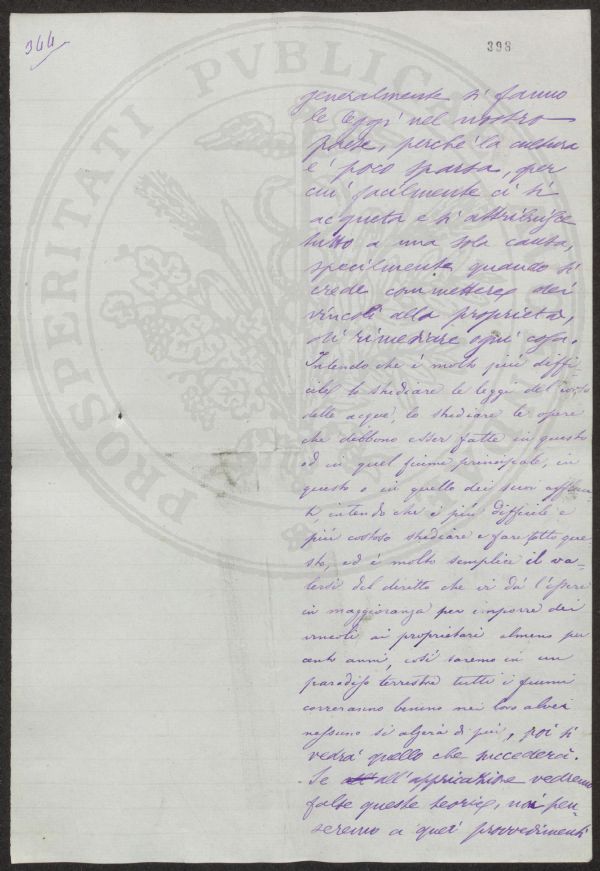 344
398
PROSPERITATI PVBLICAE
generalmente si fanno
le leggi nel nostro
paese, perchè la cultura
è poco sparsa, per
cui facilmente ci si
acqueta e si attribuisce
tutto a una sola causa,
specilmente quando si
crede con mettere dei
vincoli alla proprietà,
di rimediare ogni cosa.
Intendo che è molto più diffi-
cile lo studiare le leggi del corso
delle acque, lo studiare le opere
che debbono esser fatte in questo
od in quel fiume principale, in
questo o in quello dei suoi affluen-
ti, intendo che è più difficile e
più costoso studiare e fare tutto que
sto, ed è molto semplice il va-
lersi del diretto che vi dà l'essere
in maggioranza per imporre dei
vincoli ai proprietari almeno per
cento anni, così saremo in un
paradiso terrestre tutti i fiumi
correranno benino nei loro alvei
nessuno si alzerà di più, poi si
vedrà quello che succederà.
Se all'applicazione vedremo
false queste teorie, noi pen-
seremo a quei provvedimenti